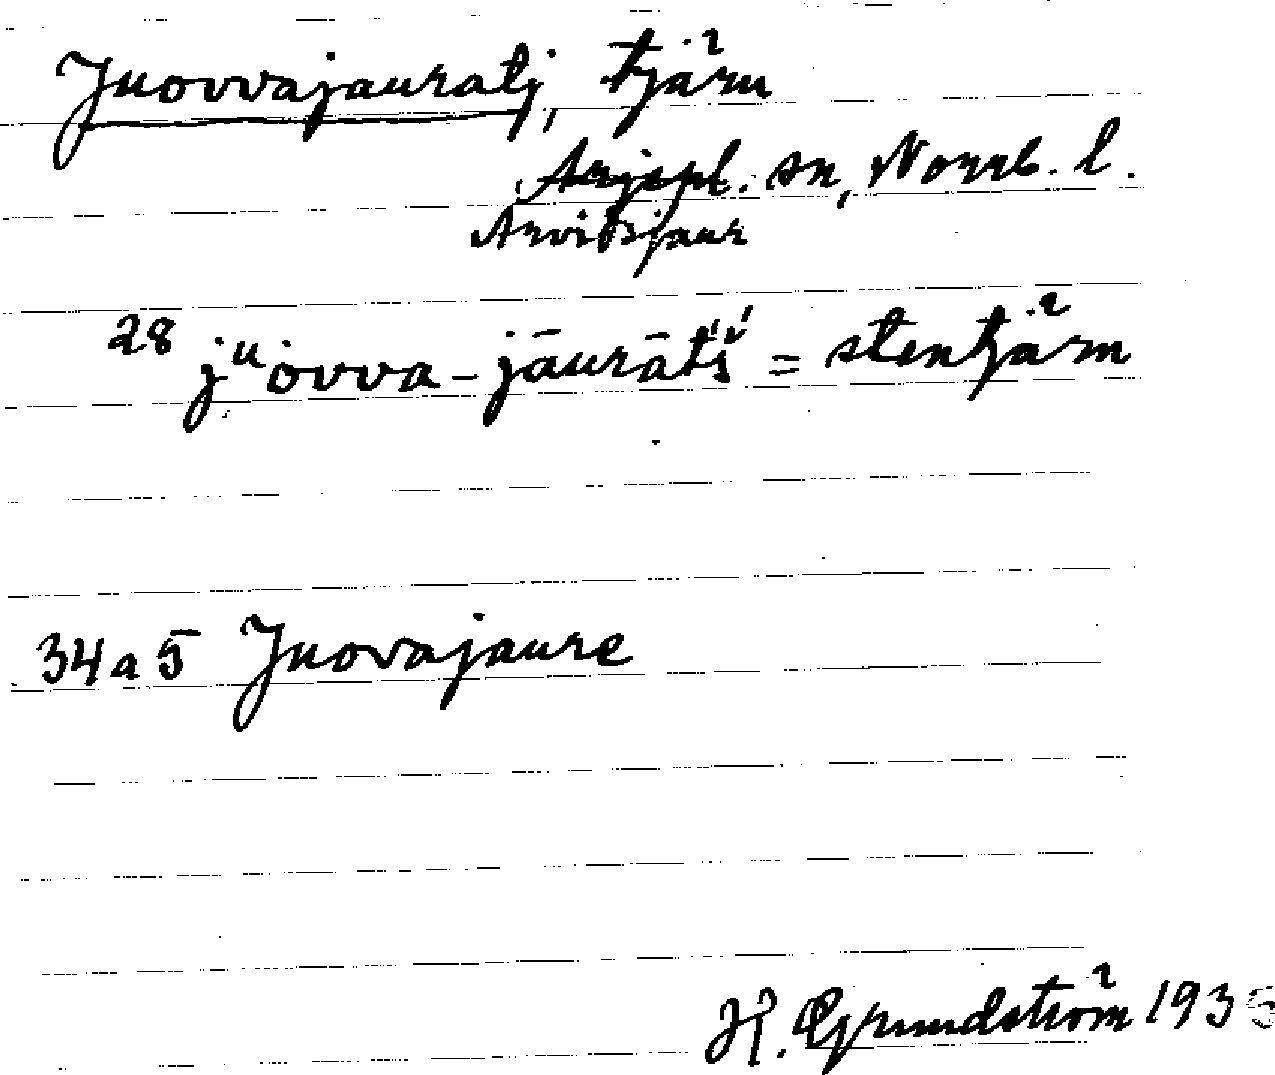 Juovvajauratj, tjärn
Arjepl. sn, Norrb. l.
Arvidsjaur
28 jᵘovva-jāurātś́ = stentjärn
34 a 5 Juovajaure
H. Grundström 1935